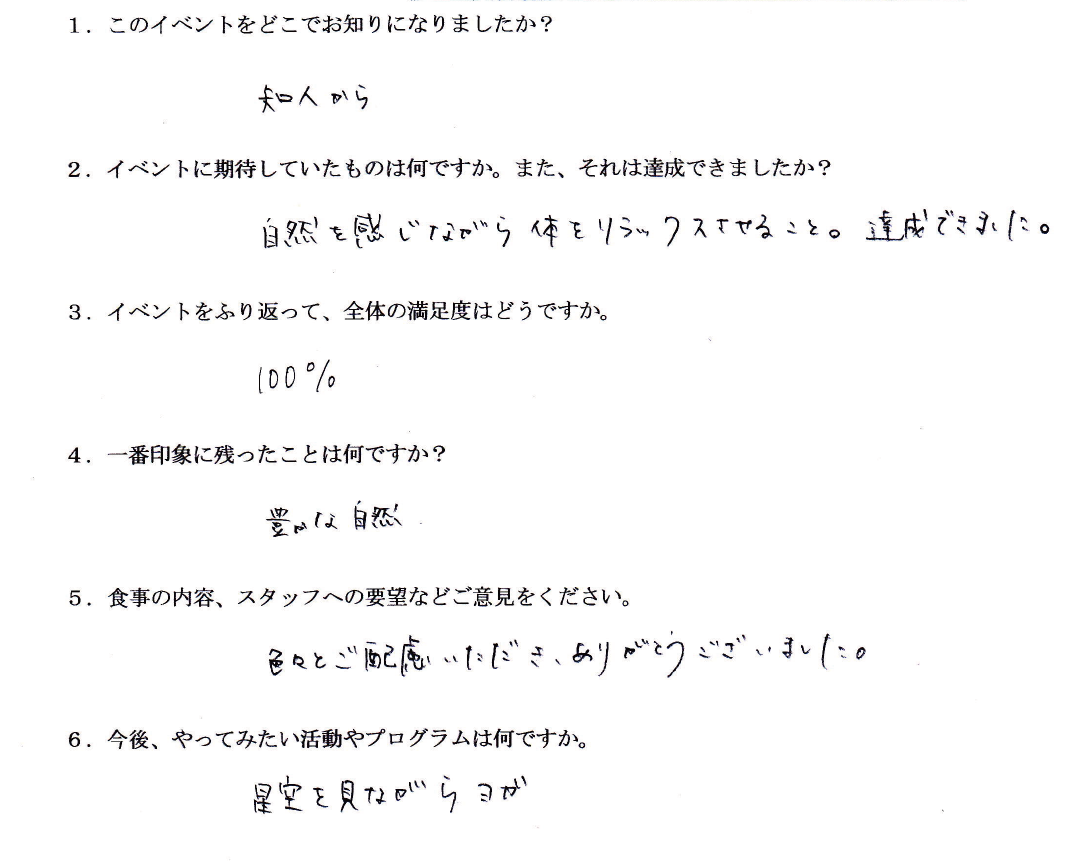 １．このイベントをどこでお知りになりましたか？
知人から
２．イベントに期待していたものは何ですか。また、それは達成できましたか？
自然を感じながら体をリラックスさせること。達成できました。
３．イベントをふり返って、全体の満足度はどうですか。
100%
４．一番印象に残ったことは何ですか？
豊かな自然
５．食事の内容、スタッフへの要望などご意見をください。
色々とご配慮いただき、ありがとうございました。
６．今後、やってみたい活動やプログラムは何ですか。
星空を見ながらヨガ